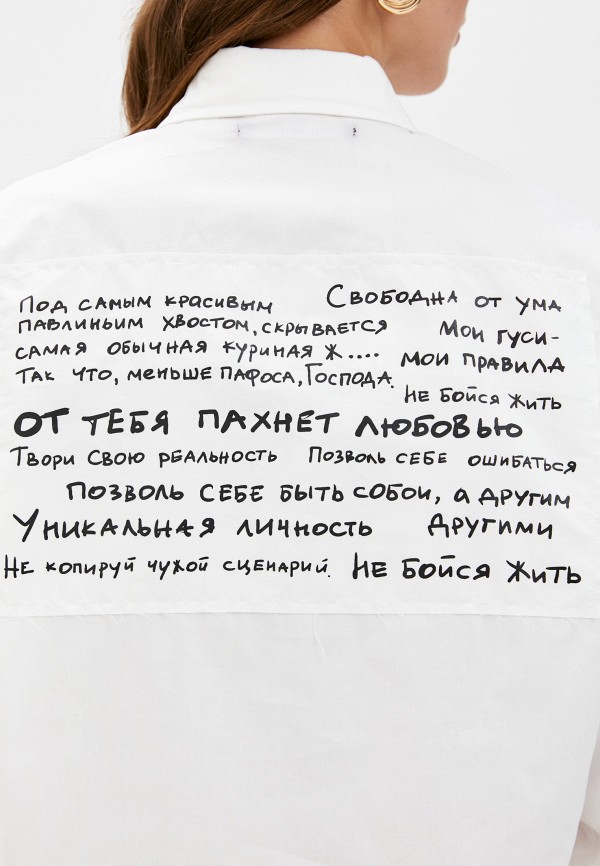 Под самым красивым
павлиньим хвостом, скрывается
самая обычная куриная ж....
Так что, меньше пафоса, Господа.
Свободна от ума
Мои гуси-
мои правила
Не бойся жить
От тебя пахнет любовью
Твори свою реальность
Позволь себе ошибаться
Позволь себе быть собой, а другим
другими
Уникальная личность
Не копируй чужой сценарий.
Не бойся жить